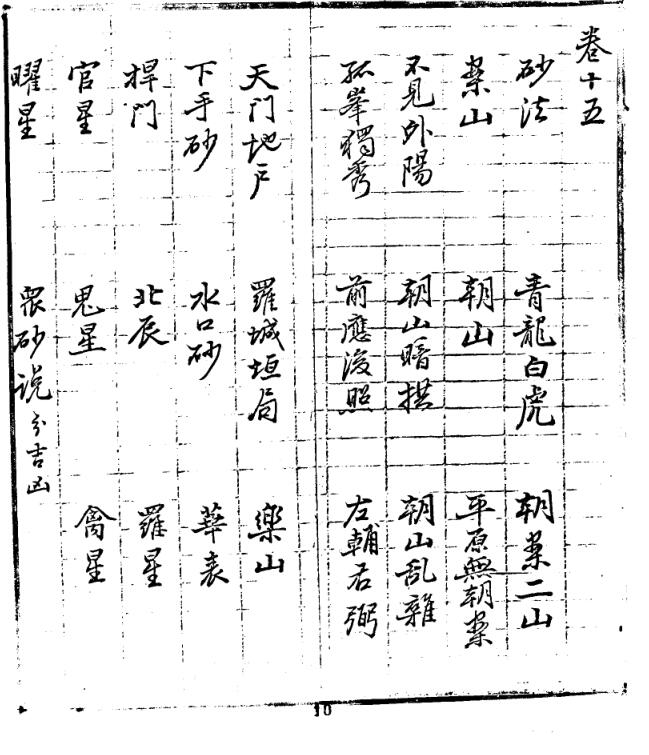 卷十五
砂法 青龍白虎 朝案二山
案山 朝山 平原無朝案
不見外陽 朝山暗拱 朝山乱雜
孤峯獨秀 前應後照 左輔右弼
天门地户 羅城垣局 樂山
下手砂 水口砂 華表
捍门 北辰 羅星
官星 鬼星 禽星
曜星 衆砂说 分吉凶
10